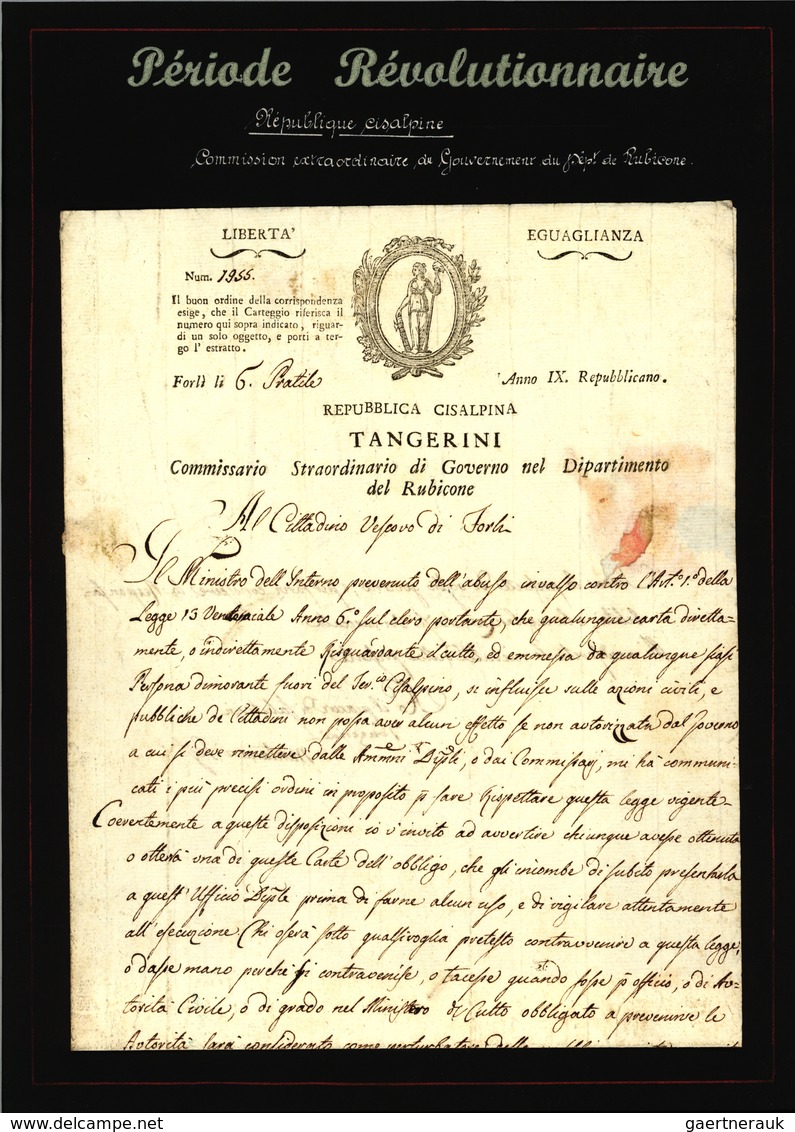 Période Révolutionnaire
République cisalpine
Commission extraordinaire du Gouvernement du Dépt. de Rubicone.
LIBERTA'
EGUAGLIANZA
Num. 1955.
Il buon ordine della corrispondenza
esige, che il Carteggio riferisca il
numero qui sopra indicato, riguar-
di un solo oggetto, e porti a ter-
go l' estratto.
Forlì li 6. Pratile
Anno IX. Repubblicano.
REPUBBLICA CISALPINA
TANGERINI
Commissario Straordinario di Governo nel Dipartimento
del Rubicone
Al Cittadino Vescovo di Forlì
Il Ministro dell'Interno prevenuto dell'abuso invalso contro l'Art.o 1.o della
Legge 13 Vendemiale Anno 6.o sul clero portante, che qualunque carta diretta-
mente, o indirettamente Risguardante il culto, ed emmessa da qualunque siasi
Persona dimorante fuori del Ter.o Cisalpino, se influisse sulle azioni civili, e
pubbliche de Cittadini non possa aver alcun effetto se non autorizzata dal Governo
a cui si deve rimettere dalle Ammni Diptli, o dai Commissarj, mi hà communi-
cati i più precisi ordini in proposito p fare Rispettare questa legge vigente-
Coerentemente a queste disposizioni io v'invito ad avvertire chiunque avesse ottenuta
o otterrà una di queste Carte dell'obbligo, che gli incombe di subito presentarla
a quest' Ufficio Diptle prima di farne alcun uso, e di vigilare attentamente
all'esecuzione Chi oserà sotto qualsivoglia pretesto contravvenire a questa legge,
o dasse mano perchè si contravenisse, o tacesse quando fosse p officio, o di Au-
torità Civile, o di grado nel Ministero di Culto obbligato a prevenirne le
Autorità sarà considerato come perturbatore della
gaertnerauk